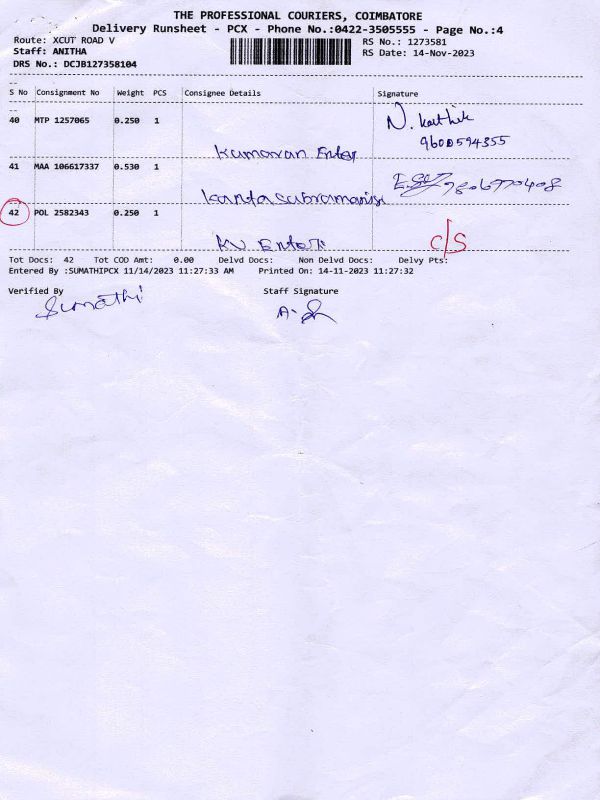 THE PROFESSIONAL COURIERS, COIMBATORE
Delivery Runsheet - PCX - Phone No.:0422-3505555 - Page No.:4
Route: XCUT ROAD V RS No.: 1273581
Staff: ANITHA RS Date: 14-Nov-2023
DRS No.: DCJB127358104
S No Consignment No Weight PCS Consignee Details Signature
40 MTP 1257065 0.250 1 N. Karthik
9600594355
Kumaran Enter
41 MAA 106617337 0.530 1
Kanta Subramani
42 POL 2582343 0.250 1
KV Enter C/S
Tot Docs: 42 Tot COD Amt: 0.00 Delvd Docs: Non Delvd Docs: Delvy Pts:
Entered By :SUMATHIPCX 11/14/2023 11:27:33 AM Printed On: 14-11-2023 11:27:32
Verified By Staff Signature
Sumathi